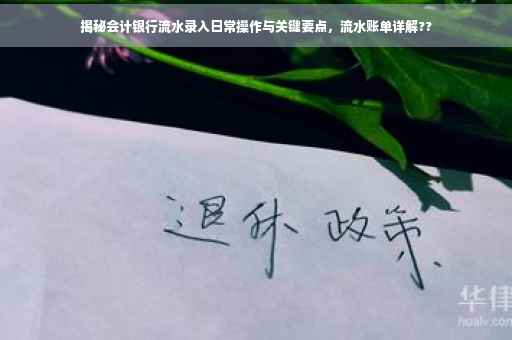 揭秘会计银行流水录入日常操作与关键要点，流水账单详解??
退休 政策
华律
hualv.com